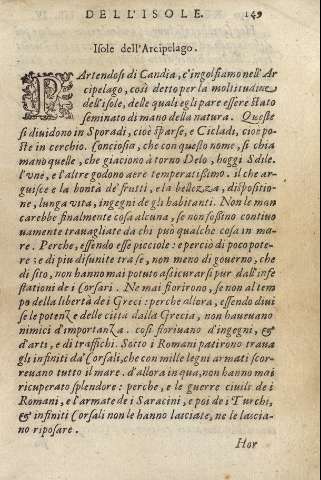 DELL'ISOLE. 149
Isole dell'Arcipelago.
PArtendosi di Candia, c'ingolfiamo nell'Ar
cipelago, così detto per la moltitudine
dell'isole, delle quali egli pare essere stato
seminato di mano della natura. Queste
si diuidono in Sporadi, cioè sparse, e Cicladi, cioè po
ste in cerchio. Conciosia, che con questo nome, si chia
mano quelle, che giaciono à torno Delo, hoggi Sdile.
l'vne, e l'altre godono aere temperatissimo. il che ar
guisce e la bontà de' frutti, e la bellezza, dispositio
ne, lunga vita, ingegni de gli habitanti. Non le man
carebbe finalmente cosa alcuna, se non fossino contiuo
uamente trauagliate da chi può qualche cosa in ma
re. Perche, essendo esse picciole: e perciò di poco pote
re: e di piu disunite tra se, non meno di gouerno, che
di sito, non hanno mai potuto assicurarsi pur dall'infe
stationi de i Corsari. Ne mai fiorirono, se non al tem
po della libertà de i Greci: perche allora, essendo diui
se le potenze delle città dalla Grecia, non haueuano
nimici d'importanza. così fioriuano d'ingegni, &
d'arti, e di traffichi. Sotto i Romani patirono traua
gli infiniti da' Corsali, che con mille legni armati scor
reuano tutto il mare. d'allora in qua, non hanno mai
ricuperato splendore: perche, e le guerre ciuili de i
Romani, e l'armate de i Saracini, e poi de i Turchi,
& infiniti Corsali non le hanno lasciate, ne le lascia
no riposare.
Hor